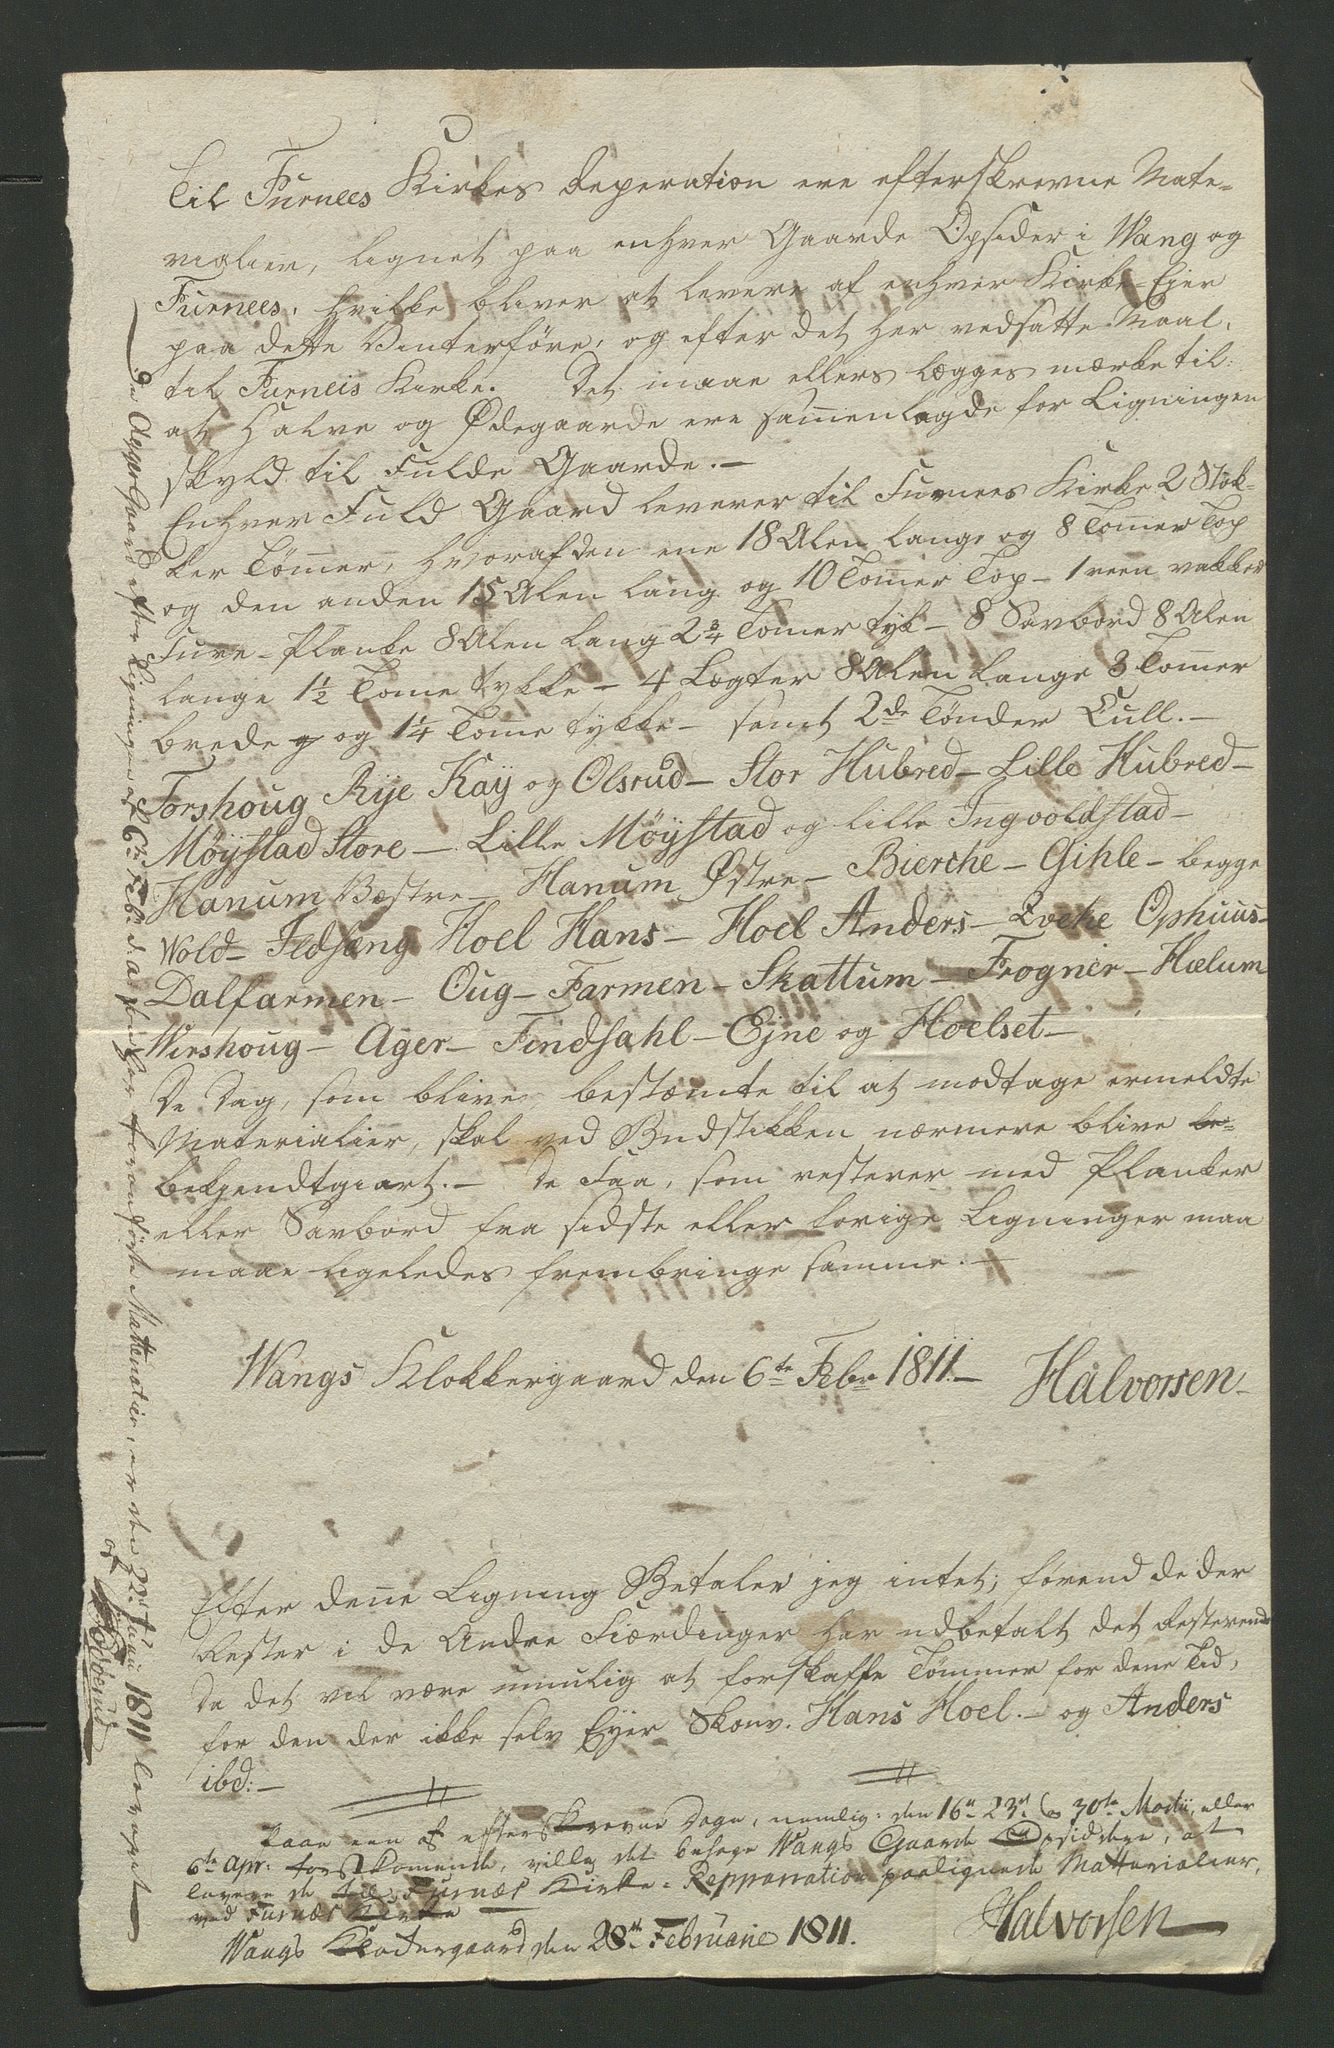 Til Furnees Kirkes Reperation ere efterskrevne Mate-
rialier, lignet paa enhver Gaarde Opsider i Wang og
Furnees, hvilke bliver at levere af enhver Kirke-Ejer
paa dette Vinterföre, og efter det her vedsatte Maal,
til Furneis Kirke. Det maae ellers lægges mærke til:
at Halve og Ødegaarde ere sammenlagde for Ligningen
skyld til Fulde Gaarde.-
Enhver Fuld Gaard leverer til Furnees Kirke 2 Stök-
ker Tömer, hvoraf den ene 18 Alen lange og 8 Tomer Top
og den anden 15 Alen lang og 10 Tomer Top - 1 reen vakker
Fure-Planke 8 Alen lang 2 3/4 Tomer tyk - 8 Savbord 8 Alen
lange 1 1/2 Tome tykke - 4 Lægter 8 Alen lange 3 Tomer
brede og 1 1/4 Tome tykke - samt 2de Tønder Cull.-
Forshoug Rye Kaÿ og Olsrud - Stor Hubred - Lille Hubred -
Möÿstad Store - Lille Möÿstad og lille Ingvoldstad -
Hanum Væstre - Hanum Østre - Bierche - Gihle - begge
Wold - Ildsæng Hoel Hans - Hoel Anders - Qveke Ophuus -
Dalfarmen - Oug - Farmen - Skattum - Frogner - Hælum
Wirshoug - Ager - Findsahl - Ejne og Hoelset -
De Dag, som blive bestæmte til at modtage ermeldte
Materialier, skal ved Budstikken nærmere blive be-
bekjendtgiort.- De Faa, som resterer med Planker
eller Savbord fra sidste eller forrige Ligninger maa
maae ligeledes frembringe samme.-
Wangs Klokkergaard den 6te Febr 1811.- Halvorsen-
Efter dene Ligning Betaler jeg intet, förend de der
Rester i de Andre Fierdinger har udbetalt det Resterende
Da det vil være umulig at forskaffe Tömmer for dene Tid,
for den der ikke selv Eyer Skouv. Hans Hoel.- og Anders
ibd:-
Paae een af efterskrevne Dage, nemlig: den 16de 23de & 30te Martii, eller
6te Apr: förstkomende, ville det behage Wangs Gaarde Opsiddere, at
levere de til Furnæs Kirke-Repparration paalignede Matterialier,
ved Furnæs Kirke
Wangs Klokergaard den 28de Februarie 1811. Halvorsen
De Aggersgaard efter Ligningen af 6te Feb: d: a: her foranförte Matterialier, er den 22de Juni 1811 leveret
af